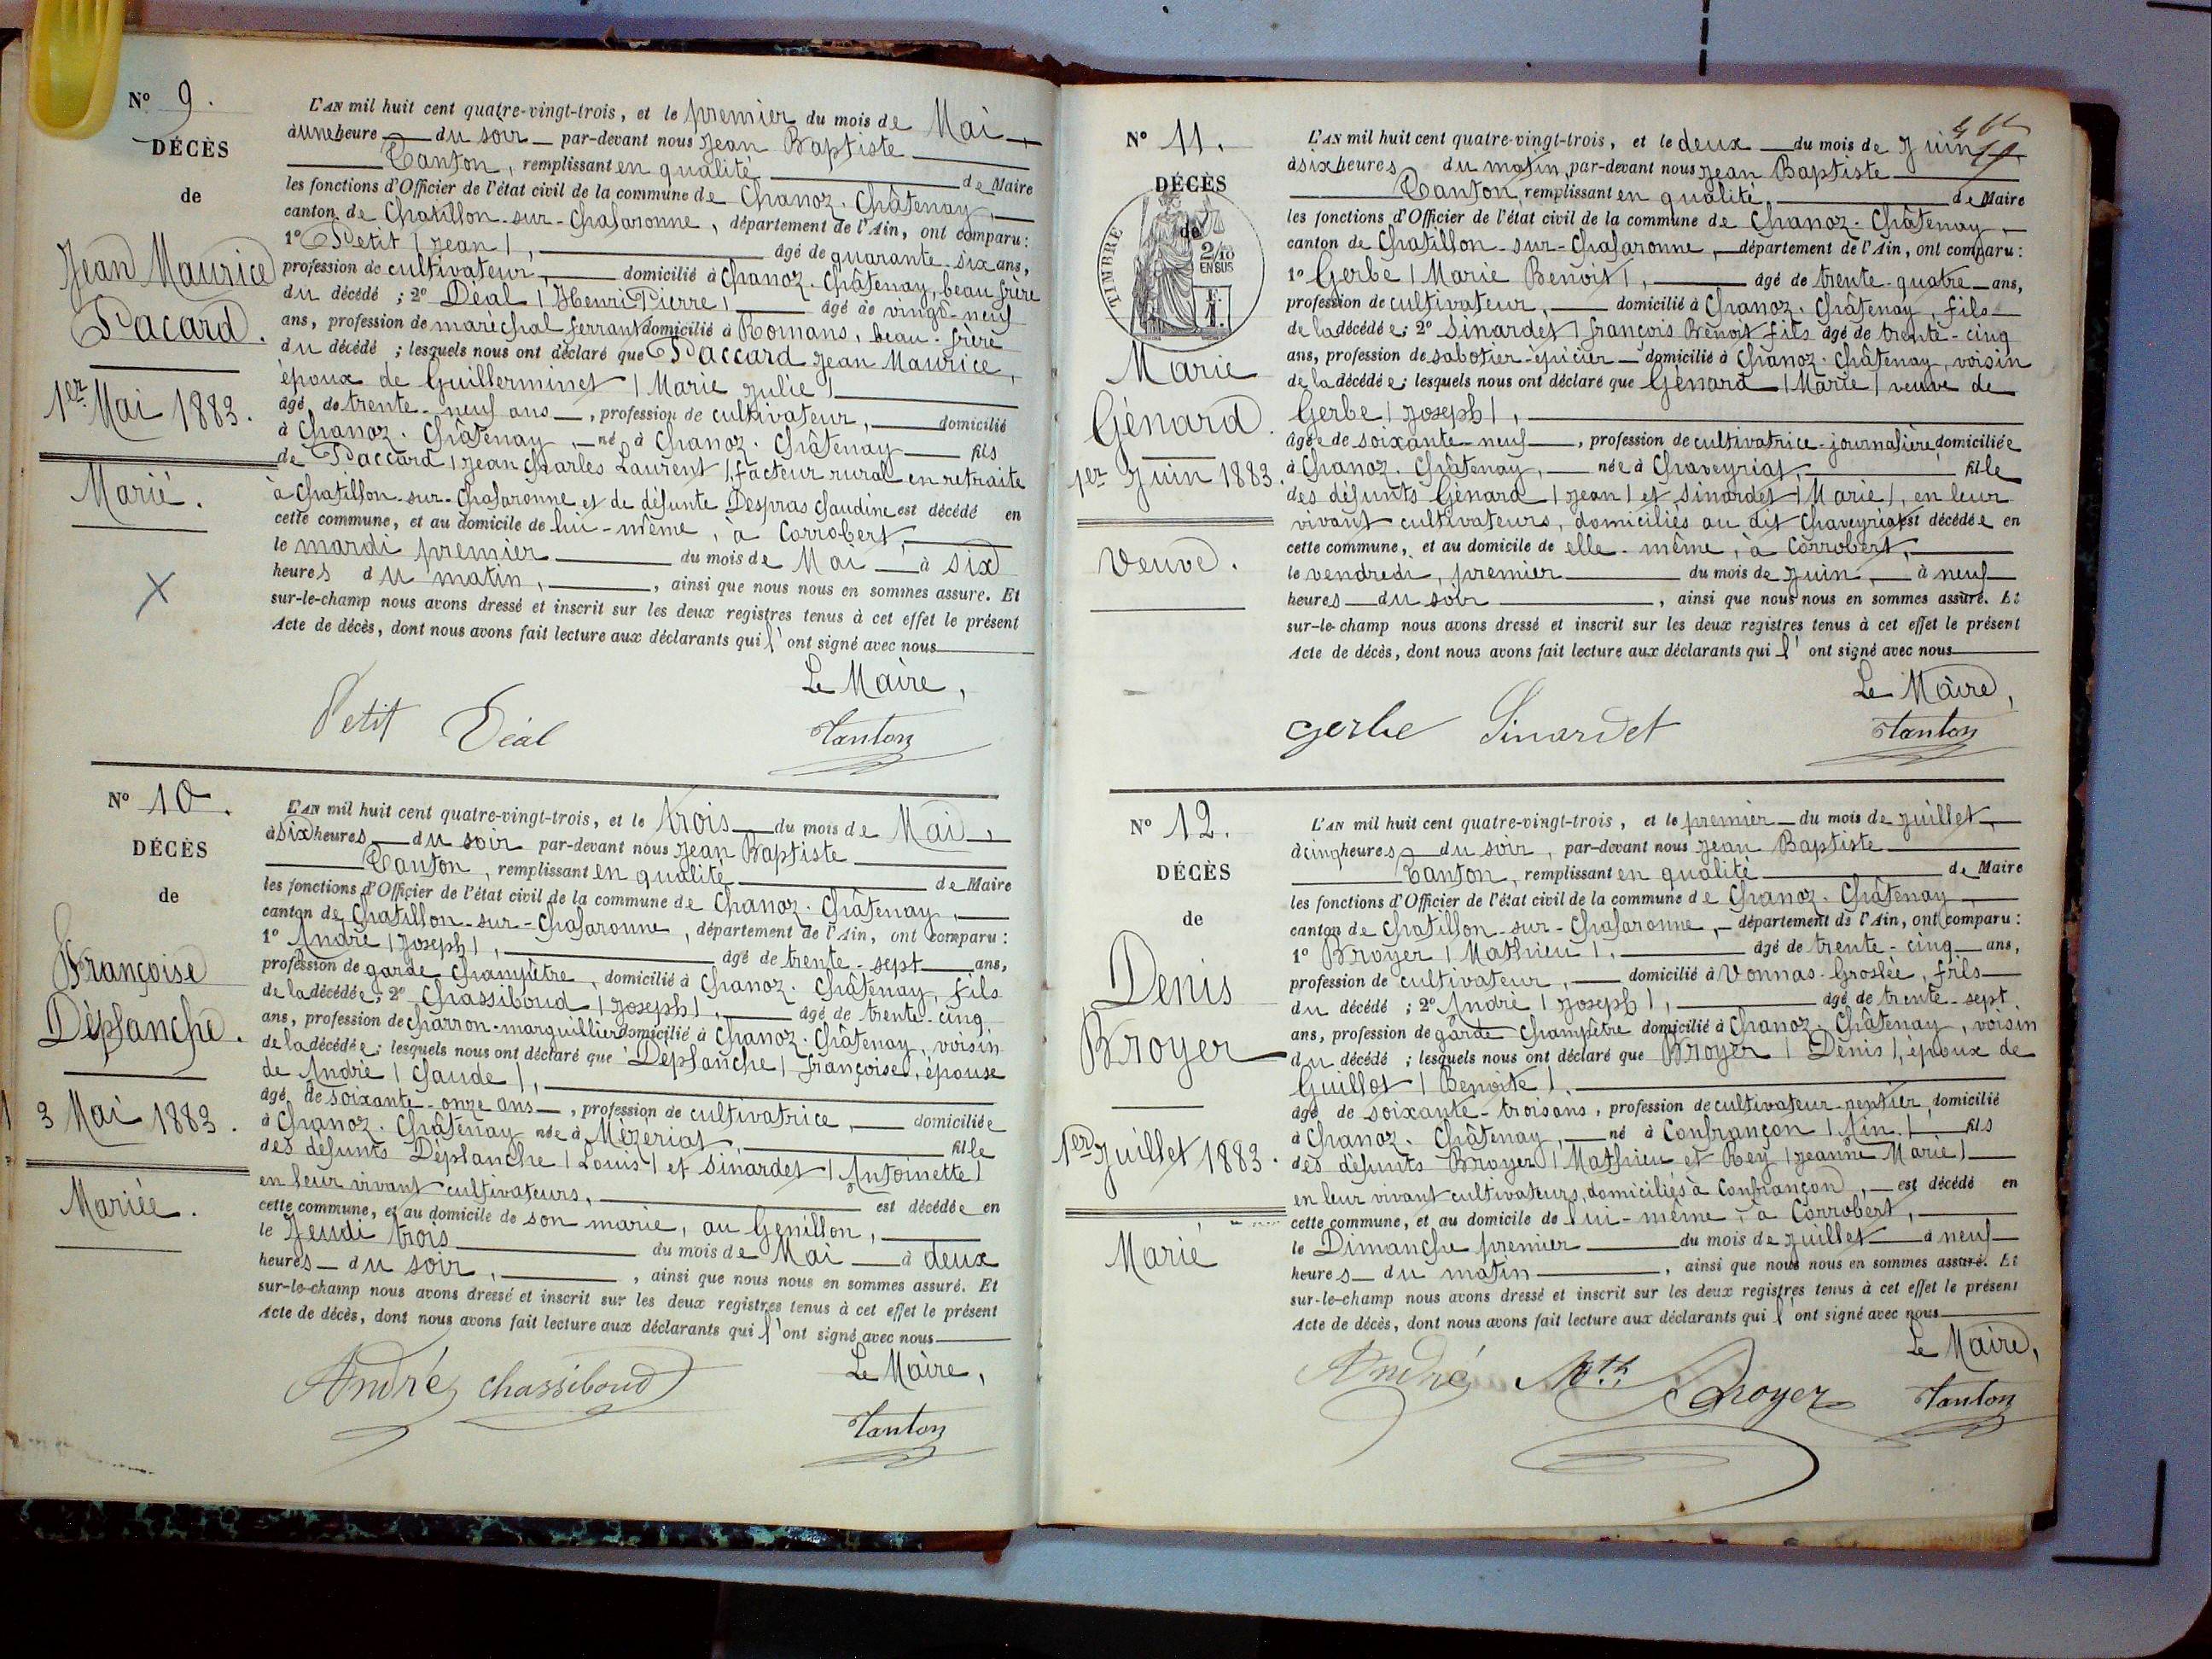 N° 9.
DÉCÈS
de
Jean Maurice
Pacard.
1er Mai 1883.
Marié.
X
L'AN mil huit cent quatre-vingt-trois, et le premier du mois de Mai
à une heure du soir par-devant nous Jean Baptiste
Tanton, remplissant en qualité de Maire
les fonctions d'Officier de l'état civil de la commune de Chanoz-Châtenay,
canton de Chatillon-sur-Chalaronne, département de l'Ain, ont comparu:
1° Petit (Jean), âgé de quarante-six ans,
profession de cultivateur, domicilié à Chanoz-Châtenay, beau frère
du décédé ; 2° Déal (Henri Pierre) âgé de vingt-neuf
ans, profession de maréchal ferrant domicilié à Romans, beau-frère
du décédé ; lesquels nous ont déclaré que Paccard Jean Maurice,
époux de Guillerminet (Marie Julie)
âgé de trente-neuf ans, profession de cultivateur, domicilié
à Chanoz-Châtenay, né à Chanoz-Châtenay fils
de Paccard (Jean Charles Laurent), facteur rural en retraite
à Chatillon-sur-Chalaronne et de défunte Despras Claudine est décédé en
cette commune, et au domicile de lui-même, à Corrobert,
le mardi premier du mois de Mai à six
heures du matin, , ainsi que nous nous en sommes assuré. Et
sur-le-champ nous avons dressé et inscrit sur les deux registres tenus à cet effet le présent
Acte de décès, dont nous avons fait lecture aux déclarants qui l'ont signé avec nous
Le Maire,
Petit Déal Tanton
N° 10.
DÉCÈS
de
Françoise
Déplanche.
3 Mai 1883.
Mariée.
L'AN mil huit cent quatre-vingt-trois, et le trois du mois de Mai
à six heures du soir par-devant nous Jean Baptiste
Tanton, remplissant en qualité de Maire
les fonctions d'Officier de l'état civil de la commune de Chanoz-Châtenay,
canton de Chatillon-sur-Chalaronne, département de l'Ain, ont comparu:
1° André (Joseph), âgé de trente-sept ans,
profession de garde champêtre, domicilié à Chanoz-Châtenay, fils
de la décédée; 2° Chassiboud (Joseph), âgé de trente-cinq
ans, profession de charron-marguillier domicilié à Chanoz-Châtenay, voisin
de la décédée; lesquels nous ont déclaré que Déplanche (Françoise), épouse
de André (Claude),
âgé de soixante-onze ans, profession de cultivatrice, domiciliée
à Chanoz-Châtenay née à Mézériat, fille
des défunts Déplanche (Louis) et Sinardet (Antoinette)
en leur vivant cultivateurs, est décédée en
cette commune, et au domicile de son marie, au Genillon,
le Jeudi trois du mois de Mai à deux
heures du soir, , ainsi que nous nous en sommes assuré. Et
sur-le-champ nous avons dressé et inscrit sur les deux registres tenus à cet effet le présent
Acte de décès, dont nous avons fait lecture aux déclarants qui l'ont signé avec nous
Le Maire,
André chassiboud Tanton
N° 11.
DÉCÈS
de
TIMBRE
2/10
EN SUS
Marie
Génard.
1er Juin 1883.
Veuve.
L'AN mil huit cent quatre-vingt-trois, et le deux du mois de Juin
à six heures du matin, par-devant nous Jean Baptiste
Tanton, remplissant en qualité de Maire
les fonctions d'Officier de l'état civil de la commune de Chanoz-Châtenay,
canton de Chatillon-sur-Chalaronne, département de l'Ain, ont comparu:
1° Gerbe (Marie Benoit), âgé de trente-quatre ans,
profession de cultivateur, domicilié à Chanoz-Châtenay, fils
de la décédée; 2° Sinardet (françois Benoit fils âgé de trente-cinq
ans, profession de sabotier-épicier domicilié à Chanoz-Châtenay, voisin
de la décédée; lesquels nous ont déclaré que Génard (Marie) veuve de
Gerbe (Joseph),
âgée de soixante-neuf, profession de cultivatrice-journalière, domiciliée
à Chanoz-Châtenay, née à Chaveyriat, fille
des défunts Génard (Jean) et Sinardet (Marie), en leur
vivant cultivateurs, domiciliés au dit Chaveyriat est décédée en
cette commune, et au domicile de elle-même, à Corrobert,
le vendredi, premier du mois de Juin, à neuf
heures du soir , ainsi que nous nous en sommes assuré. Et
sur-le-champ nous avons dressé et inscrit sur les deux registres tenus à cet effet le présent
Acte de décès, dont nous avons fait lecture aux déclarants qui l'ont signé avec nous
Le Maire,
gerbe Sinardet Tanton
N° 12.
DÉCÈS
de
Denis
Broyer
1er Juillet 1883.
Marié
L'AN mil huit cent quatre-vingt-trois, et le premier du mois de Juillet,
à cinq heures du soir, par-devant nous Jean Baptiste
Tanton, remplissant en qualité de Maire
les fonctions d'Officier de l'état civil de la commune de Chanoz-Châtenay
canton de Chatillon-sur-Chalaronne, département de l'Ain, ont comparu:
1° Broyer (Mathieu), âgé de trente-cinq ans,
profession de cultivateur, domicilié à Vonnas-Groslée, fils
du décédé ; 2° André (Joseph), âgé de trente-sept
ans, profession de garde champêtre domicilié à Chanoz-Châtenay, voisin
du décédé ; lesquels nous ont déclaré que Broyer (Denis), époux de
Guillot (Benoite),
âgé de soixante-trois ans, profession de cultivateur-rentier, domicilié
à Chanoz-Châtenay, né à Confrançon (Ain) fils
des défunts Broyer (Mathieu et Rey (Jeanne Marie)
en leur vivant cultivateurs, domiciliés à Confrançon, est décédé en
cette commune, et au domicile de lui-même, à Corrobert,
le Dimanche premier du mois de Juillet à neuf
heures du matin , ainsi que nous nous en sommes assuré. Et
sur-le-champ nous avons dressé et inscrit sur les deux registres tenus à cet effet le présent
Acte de décès, dont nous avons fait lecture aux déclarants qui l'ont signé avec nous
Le Maire,
André Mth Broyer Tanton